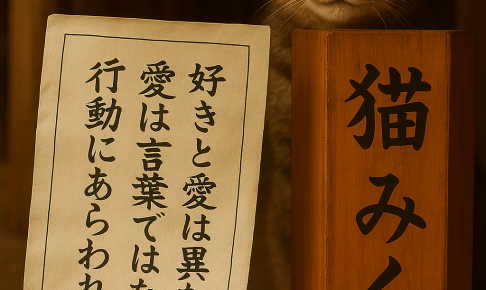 好きと愛は異
愛は言葉では
行動にあらわれ
猫みく